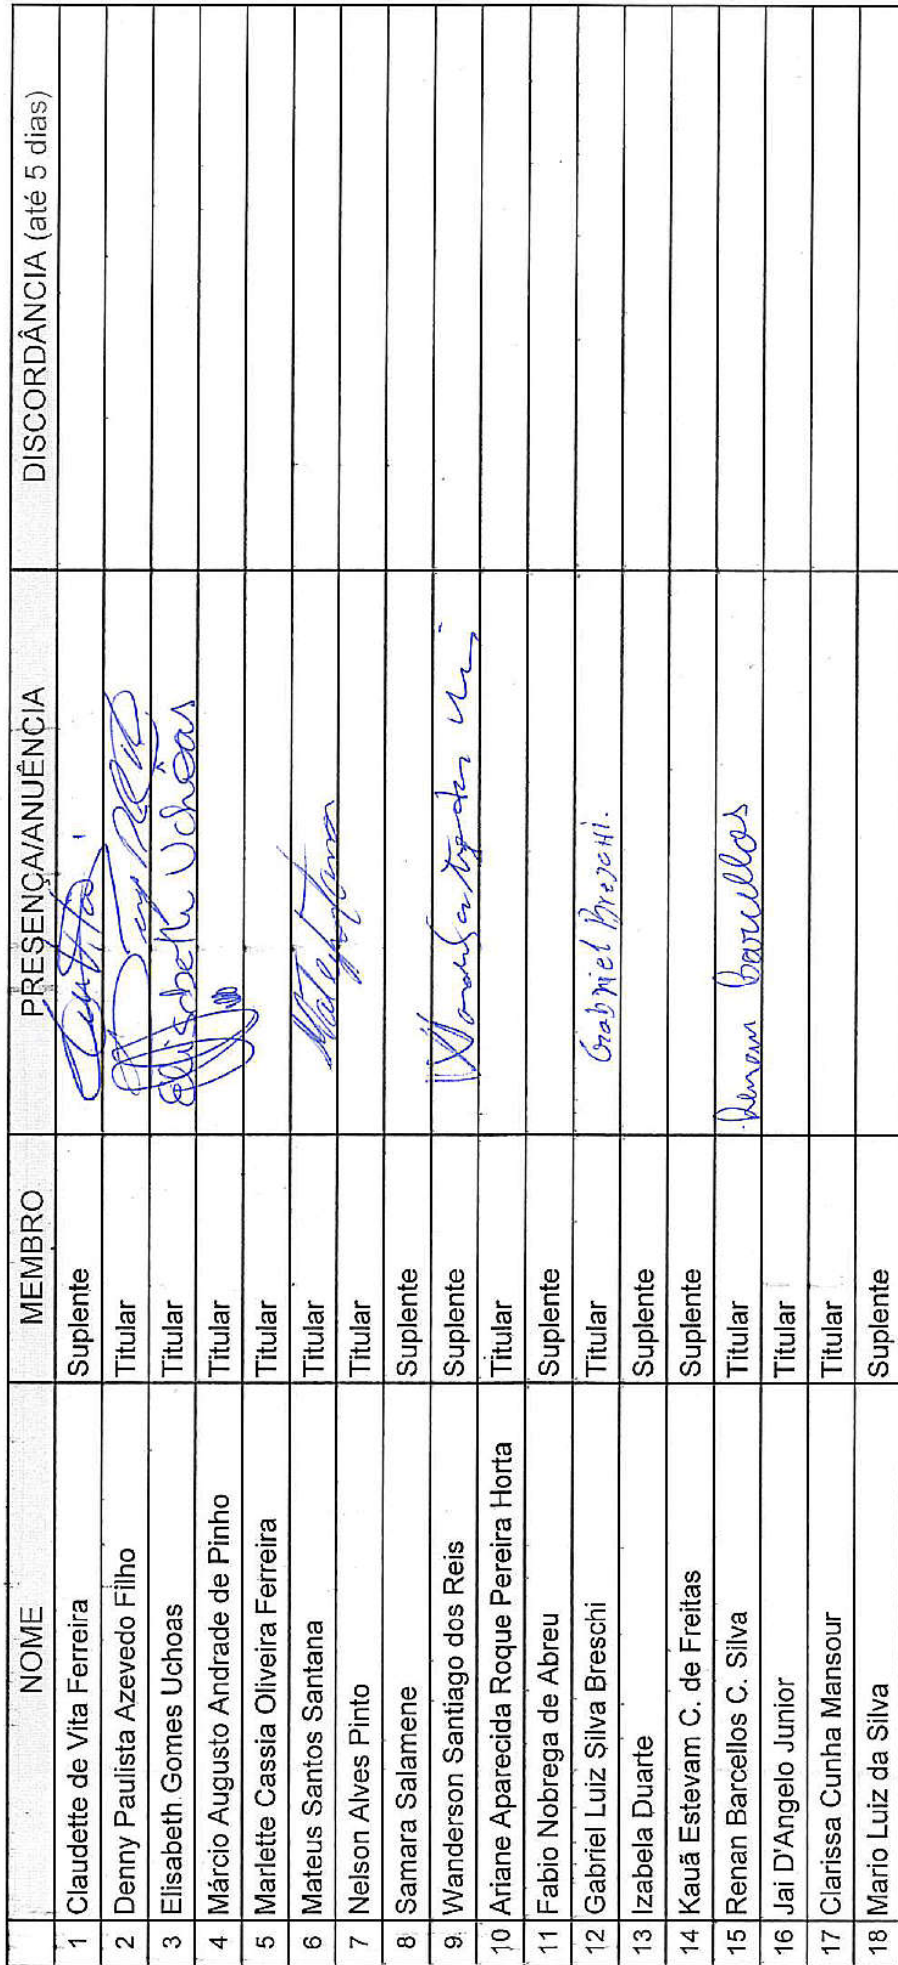 NOME MEMBRO PRESENÇA/ANUÊNCIA DISCORDÂNCIA (até 5 dias)
1 Claudette de Vita Ferreira Suplente
2 Denny Paulista Azevedo Filho Titular
3 Elisabeth Gomes Uchoas Titular Elisabeth Uchôas
4 Márcio Augusto Andrade de Pinho Titular
5 Marlette Cassia Oliveira Ferreira Titular
6 Mateus Santos Santana Titular
7 Nelson Alves Pinto Titular
8 Samara Salamene Suplente
9 Wanderson Santiago dos Reis Suplente
10 Ariane Aparecida Roque Pereira Horta Titular
11 Fabio Nobrega de Abreu Suplente
12 Gabriel Luiz Silva Breschi Titular Gabriel Breschi.
13 Izabela Duarte Suplente
14 Kauã Estevam C. de Freitas Suplente
15 Renan Barcellos C. Silva Titular Renan Barcellos
16 Jai D'Angelo Junior Titular
17 Clarissa Cunha Mansour Titular
18 Mario Luiz da Silva Suplente